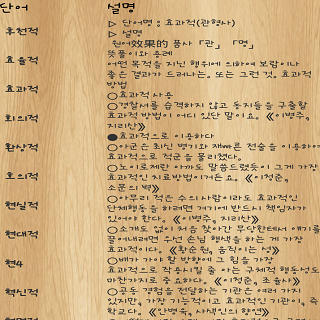 단어
설명
▷ 단어명 : 효과적(관형사)
▷ 설명
원어效果的 품사 「관」 「명」
뜻풀이와 용례
어떤 목적을 지닌 행위에 의하여 보람이나
좋은 결과가 드러나는. 또는 그런 것. 효과적
방법
○효과적 사용
○경찰서를 습격하지 않고 동지들을 구출할
효과적 방법이 어디 있단 말이요. 《이병주,
지리산》
●효과적으로 이용하다
○아군은 최신 병기와 재빠른 전술을 이용하여
효과적으로 적군을 물리쳤다.
○노이로제란 아까도 말씀드렸듯이 그게 가장
효과적인 치료방법이거든요. 《이청준,
소문의 벽》
○아무리 적은 수의 사람이라도 효과적인
단체행동을 하려면 거기에 반드시 책임자가
있어야 한다. 《이병주, 지리산》
○소개도 없이 처음 찾아간 무당한테서 얘기를
끌어내려면 우선 손님 행색을 하는 게 가장
효과적이다. 《황순원, 움직이는 성》
○배가 가야 할 방향에 그 힘을 가장
효과적으로 작용시킬 줄 아는 구체적 행동성도
마찬가지로 중요하다. 《이청준, 조율사》
○공동 경험을 전달하는 기관은 여러 가지
있지만, 가장 기능적이고 효과적인 기관이, 즉
학교다. 《안병욱, 사색인의 향연》
후천적
효율적
효과적
회의적
환상적
호의적
현실적
현대적
현4
혁신적